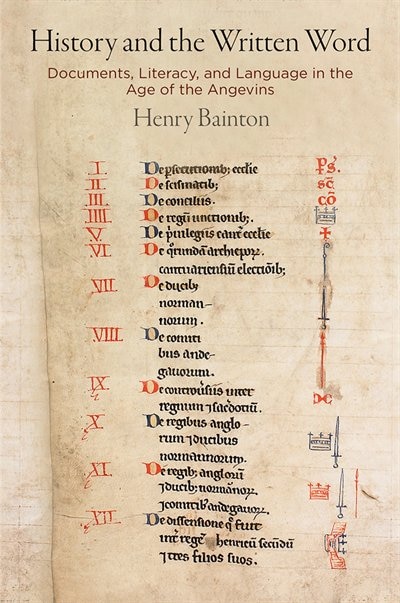 History and the Written Word
Documents, Literacy, and Language in the
Age of the Angevins
Henry Bainton
I. De persecutionib; ecclie PS.
II. De scismatib; sc̄
III. De conciliis. cō
IIII. De regū unctionib;.
V. De p̍uilegiis cant̄ ecclie
VI. De q̍rundā archiepoꝝ.
cantuariensiū electiōib;
VII. De ducib;
norman-
norum.
VIII. De comiti
bus ande-
gauorum.
IX. De controu̍siis inter
regnum ⁊ sac̍dotiū.
X. De regibus anglo-
rum ⁊ ducibus
normannorum.
XI. De regib; anglorū
⁊ ducib; normānoꝝ
⁊ comitib; andegauoꝝ.
XII. De dissensione q̄ fuit
int̍ regē henricū secūdū
⁊ tres filios suos.